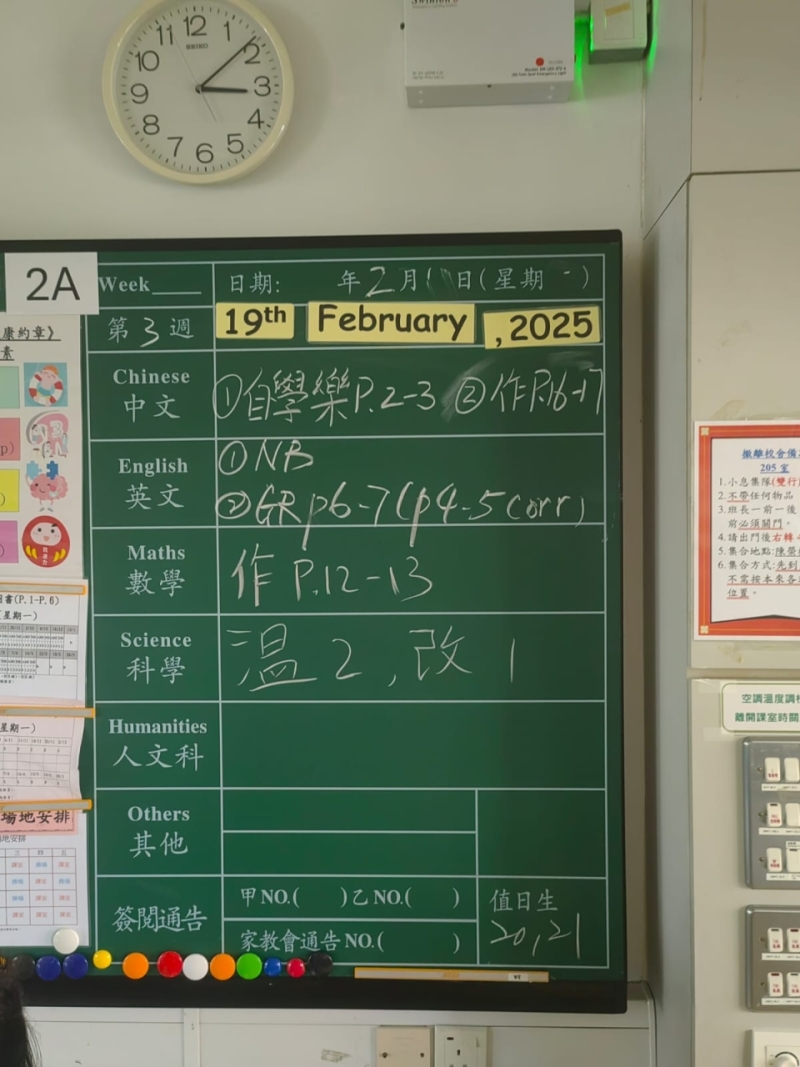 12
1
2
3
4
5
6
7
8
9
10
11
SEIKO
2A
Week____
日期: 年2月 日(星期 )
第3週
19th February , 2025
Chinese
中文
①自學樂P.2-3 ②作P.16-17
English
英文
①NB
②GR p6-7(p4-5corr)
Maths
數學
作 P.12-13
Science
科學
溫2,改1
Humanities
人文科
Others
其他
簽閱通告
甲NO.( )乙NO.( )
家教會通告NO.( )
值日生
20,21
康約章》
素
書(P.1-P.6)
星期一)
星期一)
場地安排
205 室
1.小息集隊(雙行
2.不帶任何物品
3.班長一前一後
前必須關門。
4.請出門後右轉
5.集合地點:陳榮
6.集合方式:先到
不需按本來各
位置。
空調溫度調
離開課室時關